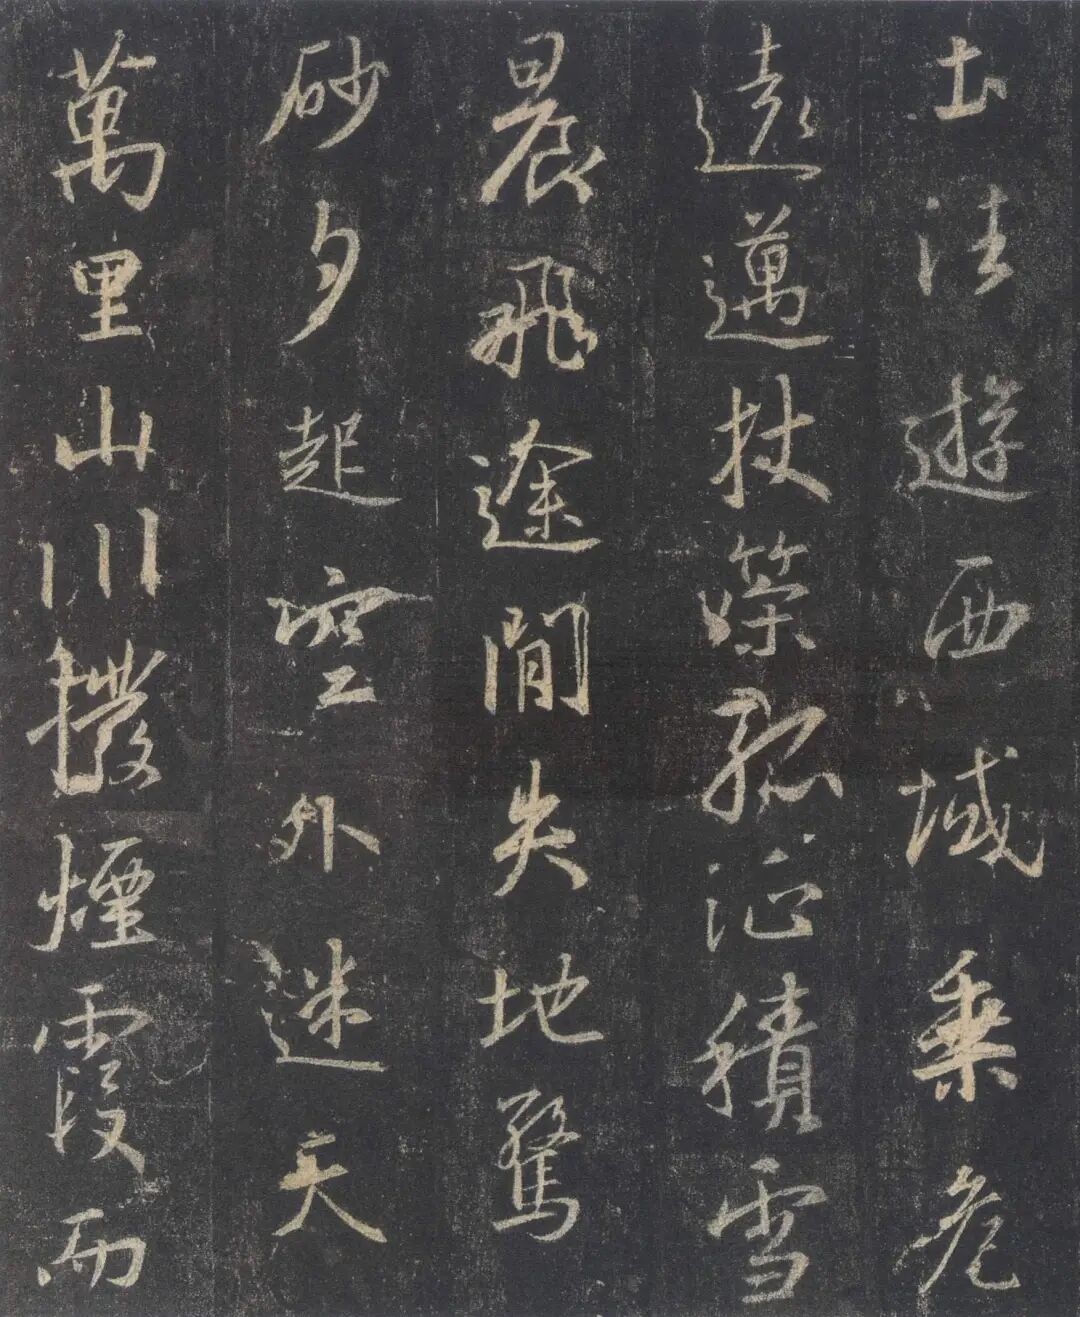 土往遊西域乗危
遠邁杖策孤征積雪
晨飛途間失地驚
砂夕起空外迷天
萬里山川撥煙霞而